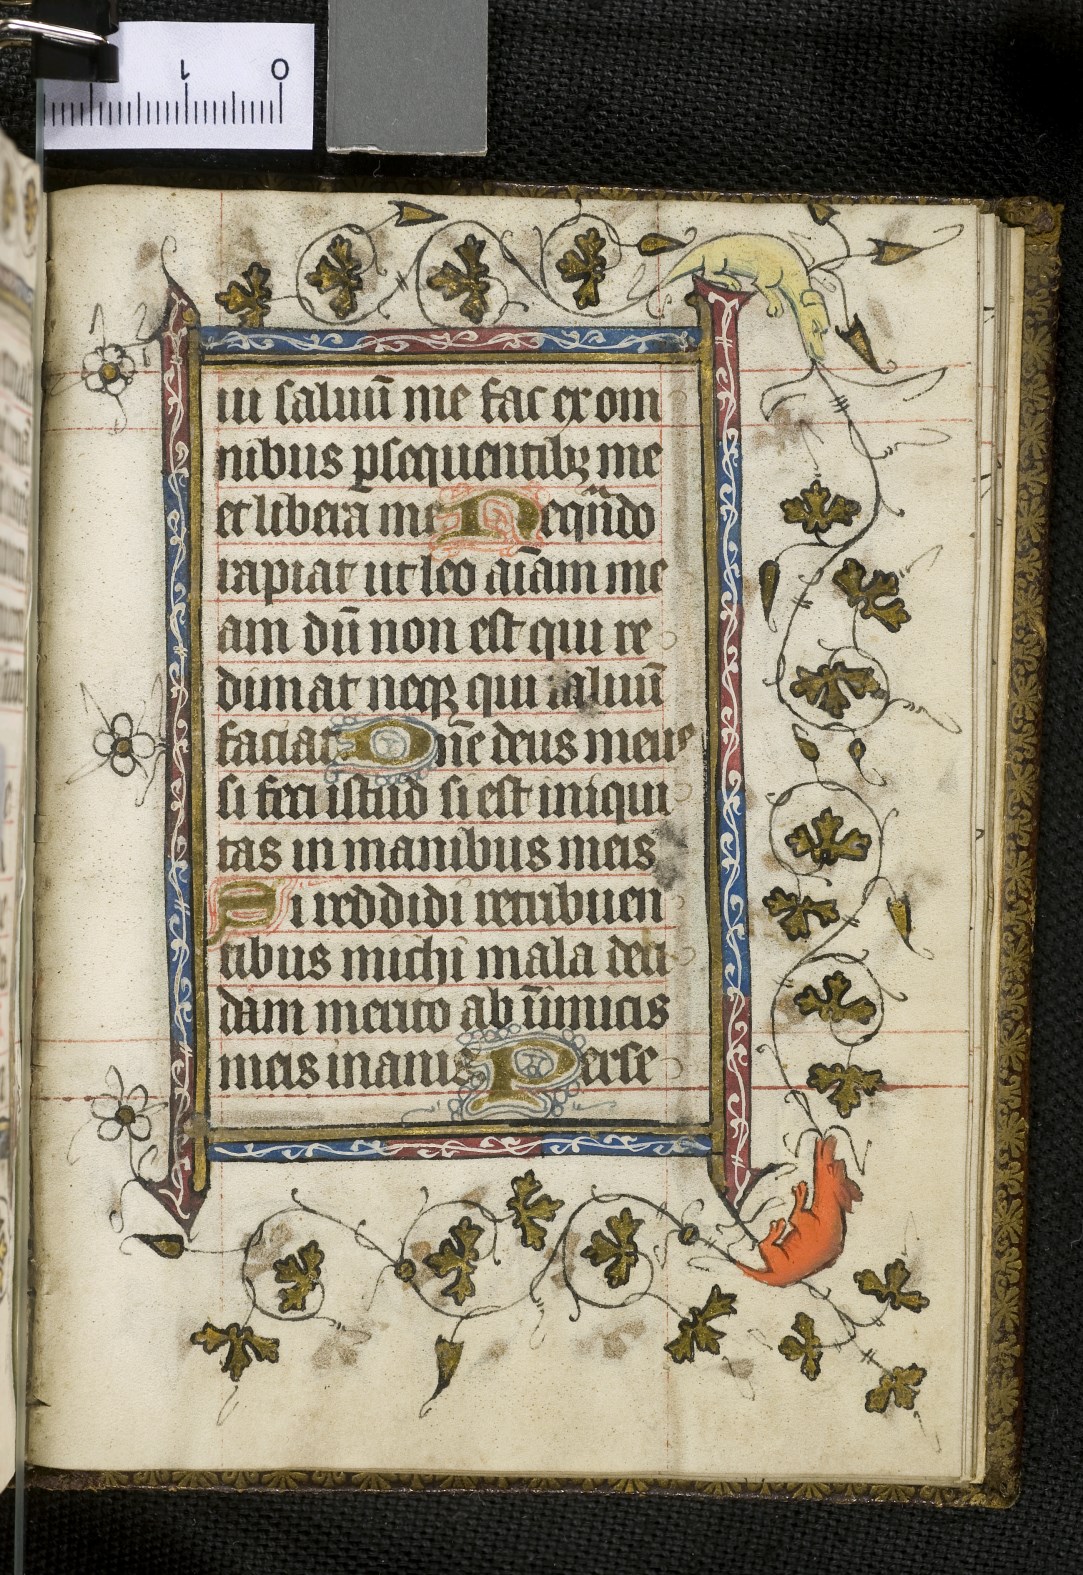 1 0
ui saluū me fac ex om
nibus ꝑsequentibꝫ me
et libera me Nequādo
rapiat ut leo aīam me
am dū non est qui re
dimat neqꝫ qui saluū
faciat Dn̄e deus meus
si feci istud si est iniqui
tas in manibus meis
Si reddidi retribuen
tibus michi mala deci
dam merito ab inīmicis
meis inanis Perse